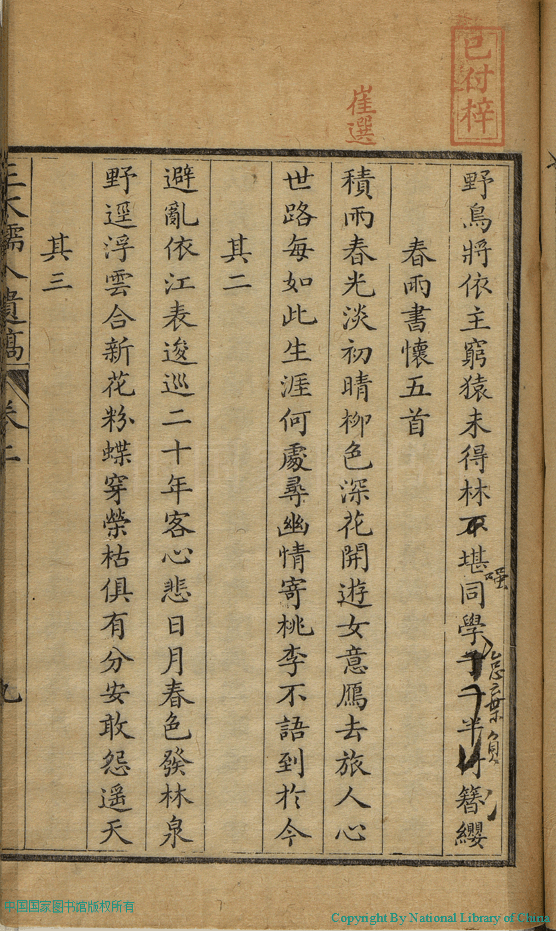 已付梓
崔選
野鳥將依主窮猿未得林不堪同學半簪纓
春雨書懷五首
積雨春光淡初晴柳色深花開遊女意鴈去旅人心
世路每如此生涯何處尋幽情寄桃李不語到於今
其二
避亂依江表逡巡二十年客心悲日月春色發林泉
野逕浮雲合新花粉蝶穿榮枯俱有分安敢怨遥天
其三
孺人遺稿 卷二 九
中国国家图书馆版权所有
Copyright By National Library of China